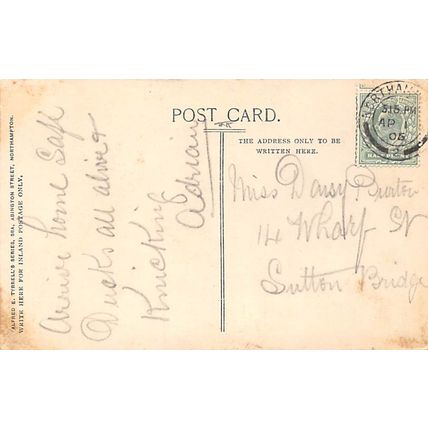 POST CARD.
THE ADDRESS ONLY TO BE
WRITTEN HERE.
ALFRED E. TYRRELL'S SERIES, 50A, ABINGTON STREET, NORTHAMPTON.
WRITE HERE FOR INLAND POSTAGE ONLY.
Arrive home safe
Ducks all alive &
Knicking
Adrian
Miss Daisy Burton
14 Wharf St
Sutton Bridge
NORTHAM
515 PM
AP
05
HALFPENNY